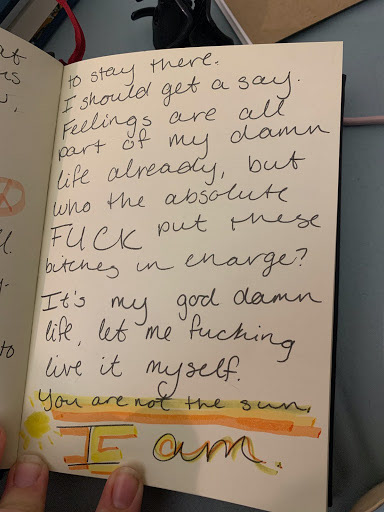 to stay there.
I should get a say.
Feelings are all
part of my damn
life already, but
who the absolute
FUCK put these
bitches in charge?
It's my god damn
life, let me fucking
live it myself.
You are not the sun.
I am.